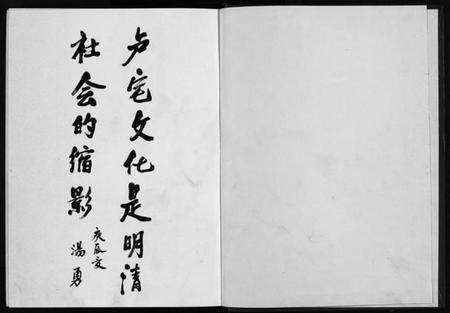 卢宅文化是明清
社会的缩影
庚辰夏
湯勇